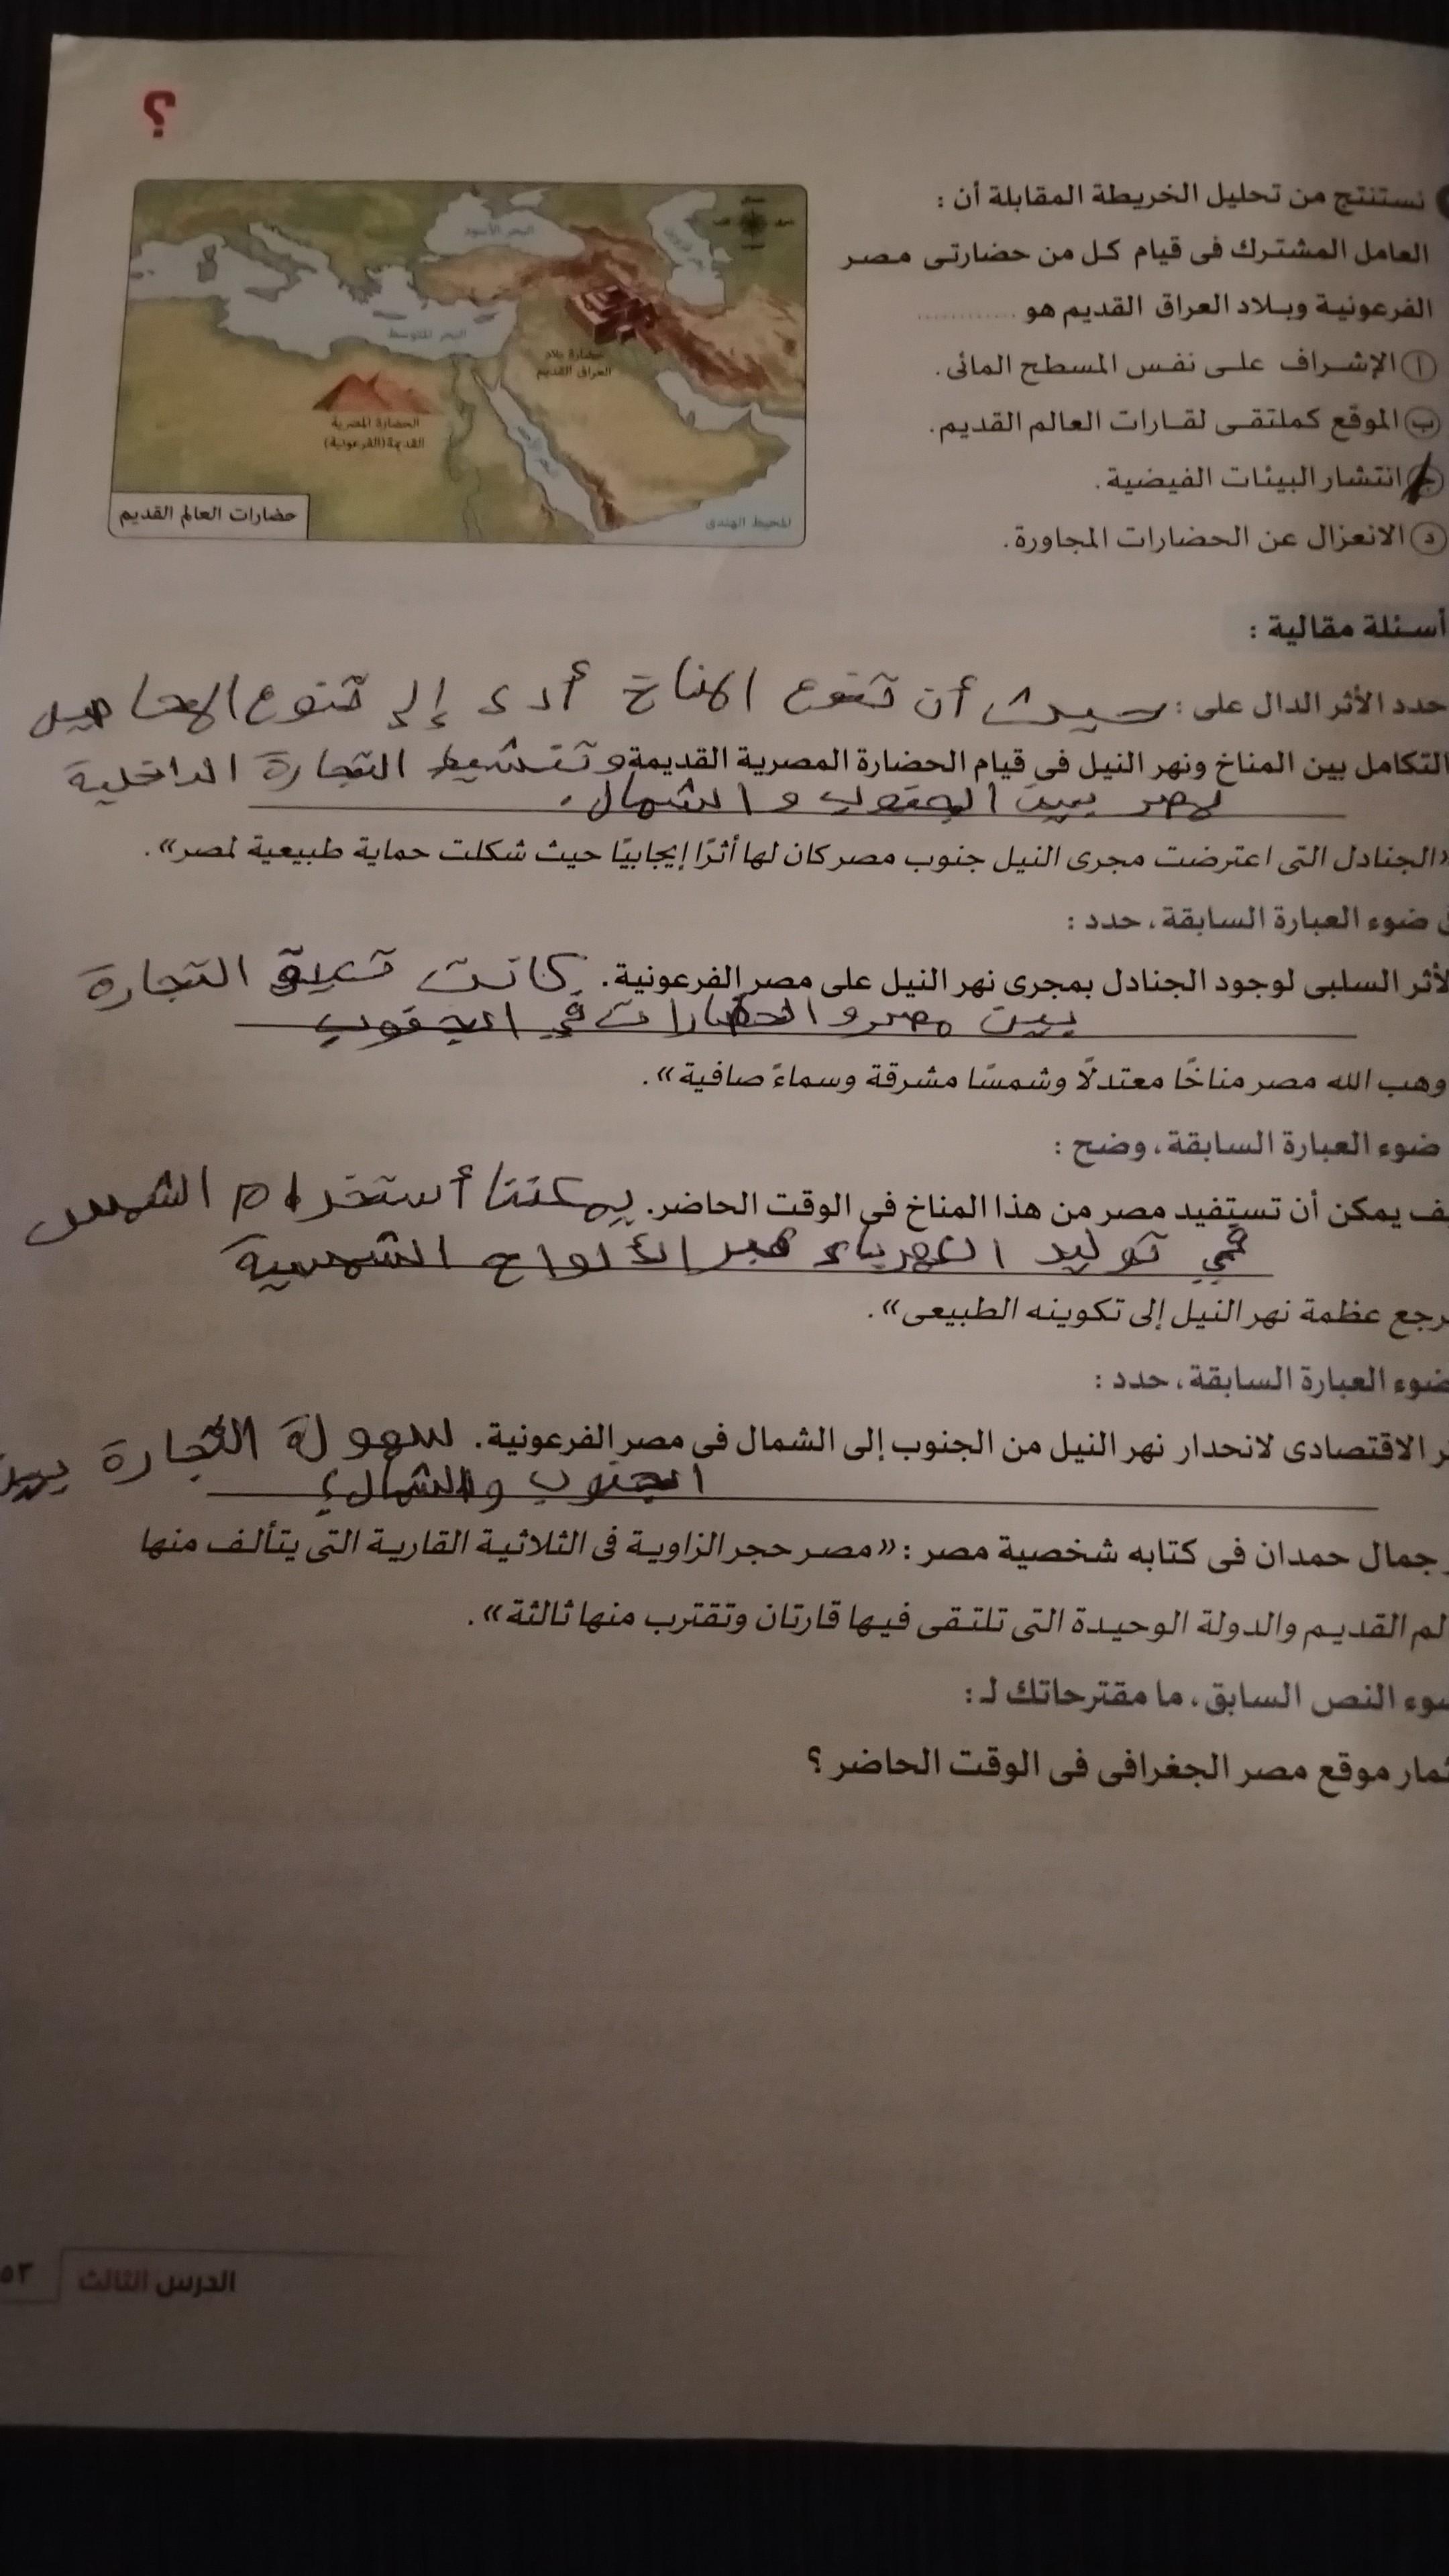 ؟
نستنتج من تحليل الخريطة المقابلة أن :
العامل المشترك فى قيام كل من حضارتى مصر
الفرعونية وبلاد العراق القديم هو ............
أ الإشراف على نفس المسطح المائى.
ب الموقع كملتقى لقارات العالم القديم.
ج انتشار البيئات الفيضية.
د الانعزال عن الحضارات المجاورة.
البحر الأسود
البحر المتوسط
حضارة بلاد
العراق القديم
الحضارة المصرية
القديمة (الفرعونية)
المحيط الهندى
حضارات العالم القديم
أسئلة مقالية :
حدد الأثر الدال على : حيث أن تنوع المناخ أدى إلى تنوع المحاصيل
التكامل بين المناخ ونهر النيل فى قيام الحضارة المصرية القديمة وتنشيط التجارة الداخلية
لمصر بين الجنوب و الشمال.
«الجنادل التى اعترضت مجرى النيل جنوب مصر كان لها أثرًا إيجابيًا حيث شكلت حماية طبيعية لمصر».
ضوء العبارة السابقة، حدد :
لأثر السلبى لوجود الجنادل بمجرى نهر النيل على مصر الفرعونية. كانت تعيق التجارة
بين مصر و الحضارات في الجنوب
وهب الله مصر مناخًا معتدلًا وشمسًا مشرقة وسماءً صافية».
ضوء العبارة السابقة، وضح :
ف يمكن أن تستفيد مصر من هذا المناخ فى الوقت الحاضر. يمكننا أستخدام الشمس
في توليد الكهرباء عبر الألواح الشمسية
رجع عظمة نهر النيل إلى تكوينه الطبيعى».
ضوء العبارة السابقة، حدد :
ر الاقتصادى لانحدار نهر النيل من الجنوب إلى الشمال فى مصر الفرعونية. سهولة التجارة بين
الجنوب والشمال
جمال حمدان فى كتابه شخصية مصر : «مصر حجر الزاوية فى الثلاثية القارية التى يتألف منها
لم القديم والدولة الوحيدة التى تلتقى فيها قارتان وتقترب منها ثالثة».
وء النص السابق، ما مقترحاتك لـ :
ثمار موقع مصر الجغرافى فى الوقت الحاضر ؟
الدرس الثالث ٥٣